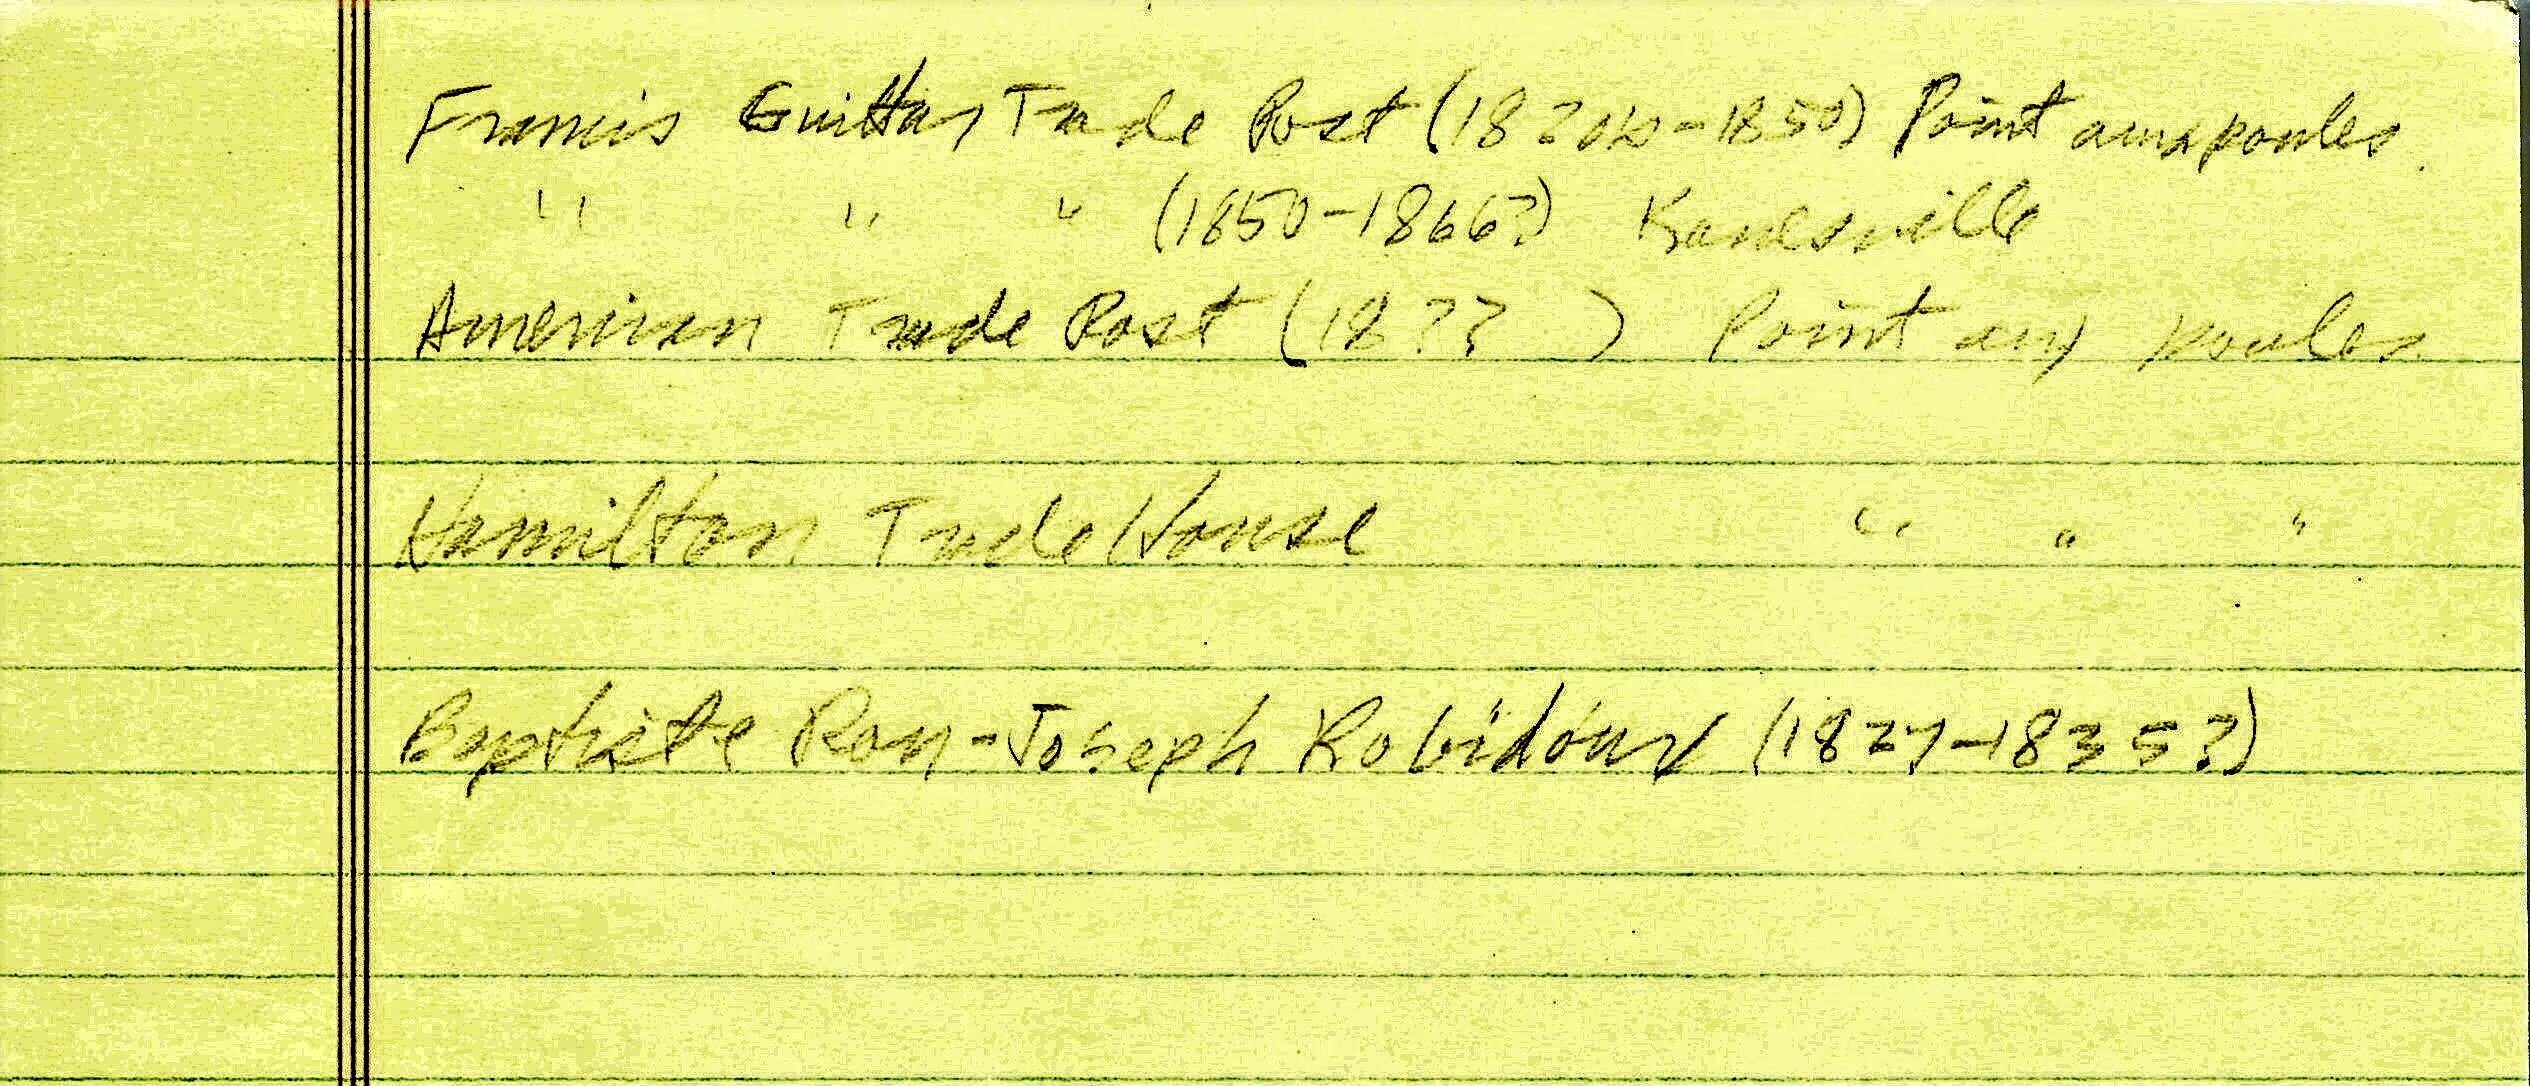 Francis Guittar Trade Post (1820s-1850) Point aux poules
" " " (1850-1866?) Kanesville
American Trade Post (18?? ) Point aux poules
Hamilton Trade House " " "
Baptiste Roy-Joseph Robidoux (1827-1835?)